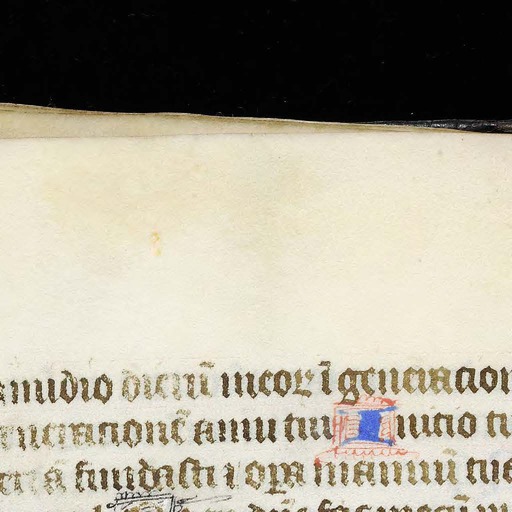 dimidio dierū meoꝝ ī generacion
eneracionē anni tui Inicio tu
terrā fundasti ⁊ opa manuū tua